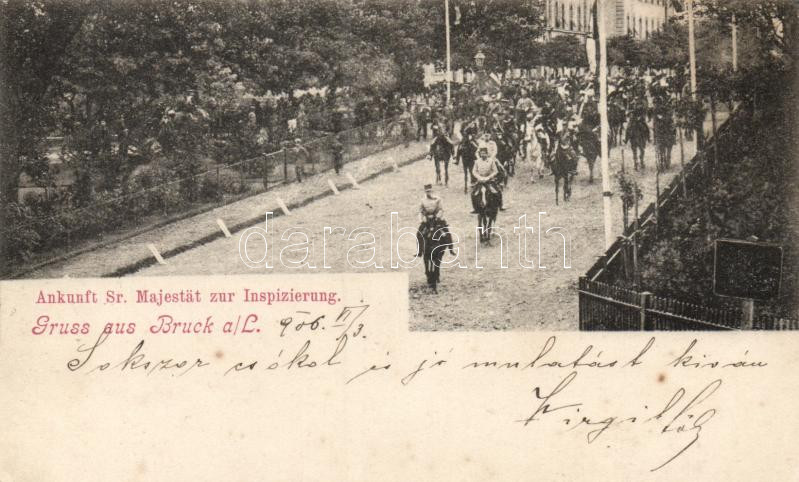 darabanth
Ankunft Sr. Majestät zur Inspizierung.
Gruss aus Bruck a/L. 906. II/3.
Sokszor csókol és jó mulatást kiván
Virgil